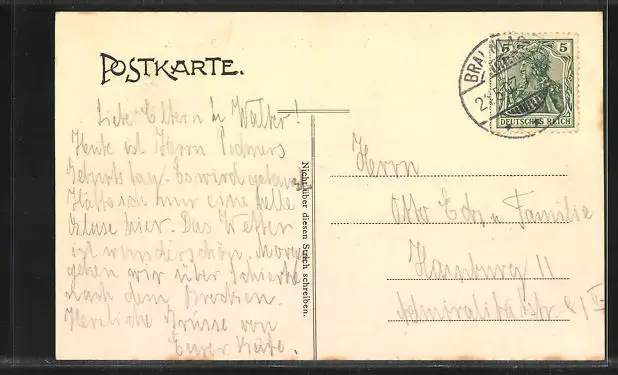 POSTKARTE.
Liebe Eltern u Walter!
Heute ist Herrn
Geburtstag. Es wird
Hätte ich nur eine helle
Bluse hier. Das Wetter
ist wunderschön. Morg
gehen wir über Schierke
nach dem Brocken.
Herzliche Grüsse von
Eurer Käte.
Nicht über diesen Strich schreiben.
5 5
DEUTSCHES REICH
Herrn
Otto u Familie
Hamburg 11
Admiralitätstr